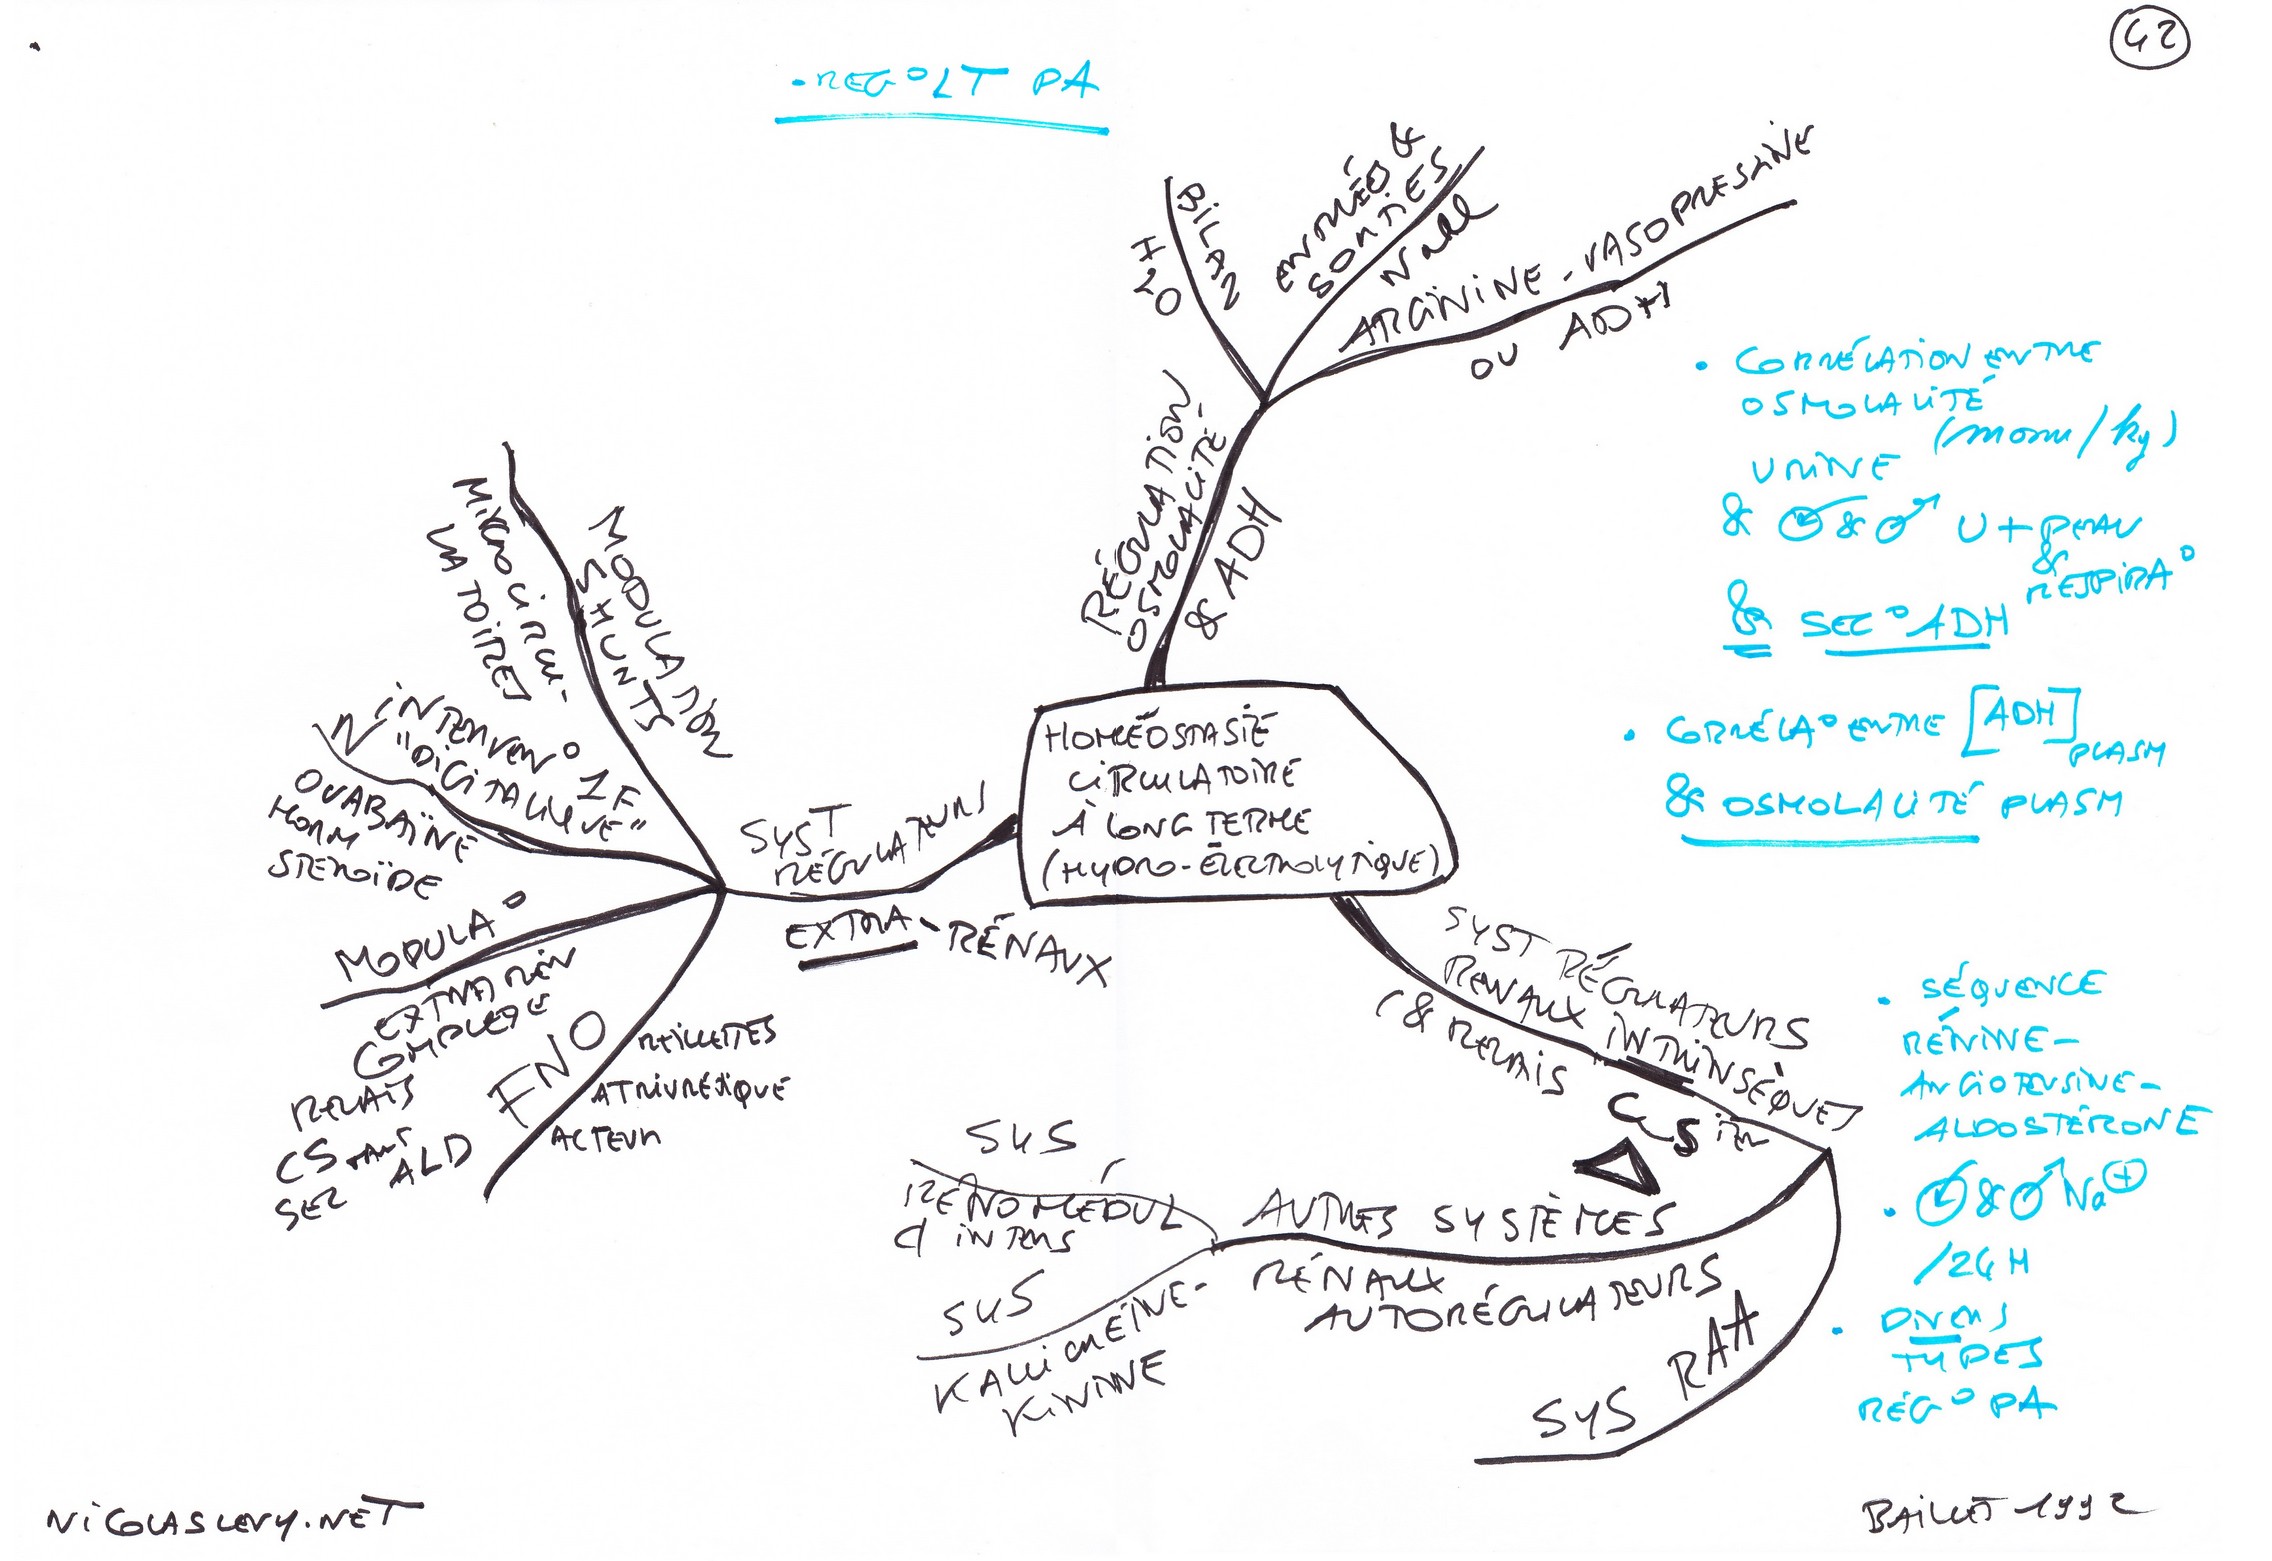 42
• REG° LT PA
BILAN
H2O
ENTRÉES &
SORTIES
NaCl
ARGININE-VASOPRESSINE
OU ADH
RÉGULATION
OSMOLALITÉ
& ADH
HOMÉOSTASIE
CIRCULATOIRE
À LONG TERME
(HYDRO-ÉLECTROLYTIQUE)
SYST
RÉGULATEURS
EXTRA-RÉNAUX
MODULATION
SHUNTS
MICROCIRCU-
LATOIRES
INTERVEN° IF
N "DIGITALIQUE"
OUABAÏNE
HORM
STEROÏDE
MODULA°
EXTRARÉN
COMPLEXE
RELAIS
CS
SER ALD
FNO
REILLETTES
ATRIURÉTIQUE
ACTEUR
SYST RÉGULATEURS
RÉNAUX INTRINSÈQUES
(& RELAIS
AUTRES SYSTÈMES
RÉNAUX
AUTORÉGULATEURS
SYS
RÉNOMÉDUL
INTERS
SYS
KALLICRÉINE-
KININE
SYS RAA
• CORRÉLATION ENTRE
OSMOLALITÉ
URINE (mosm/kg)
& & U + PEAU
& RESPIRA°
& SEC° ADH
• CORRÉLA° ENTRE [ADH]
PLASM
& OSMOLALITÉ PLASM
• SÉQUENCE
RÉNINE-
ANGIOTENSINE-
ALDOSTÉRONE
• & Na+
/24H
• DIVERS
TYPES
RÉG° PA
NICOLASLEVY.NET
BAILLET 1992